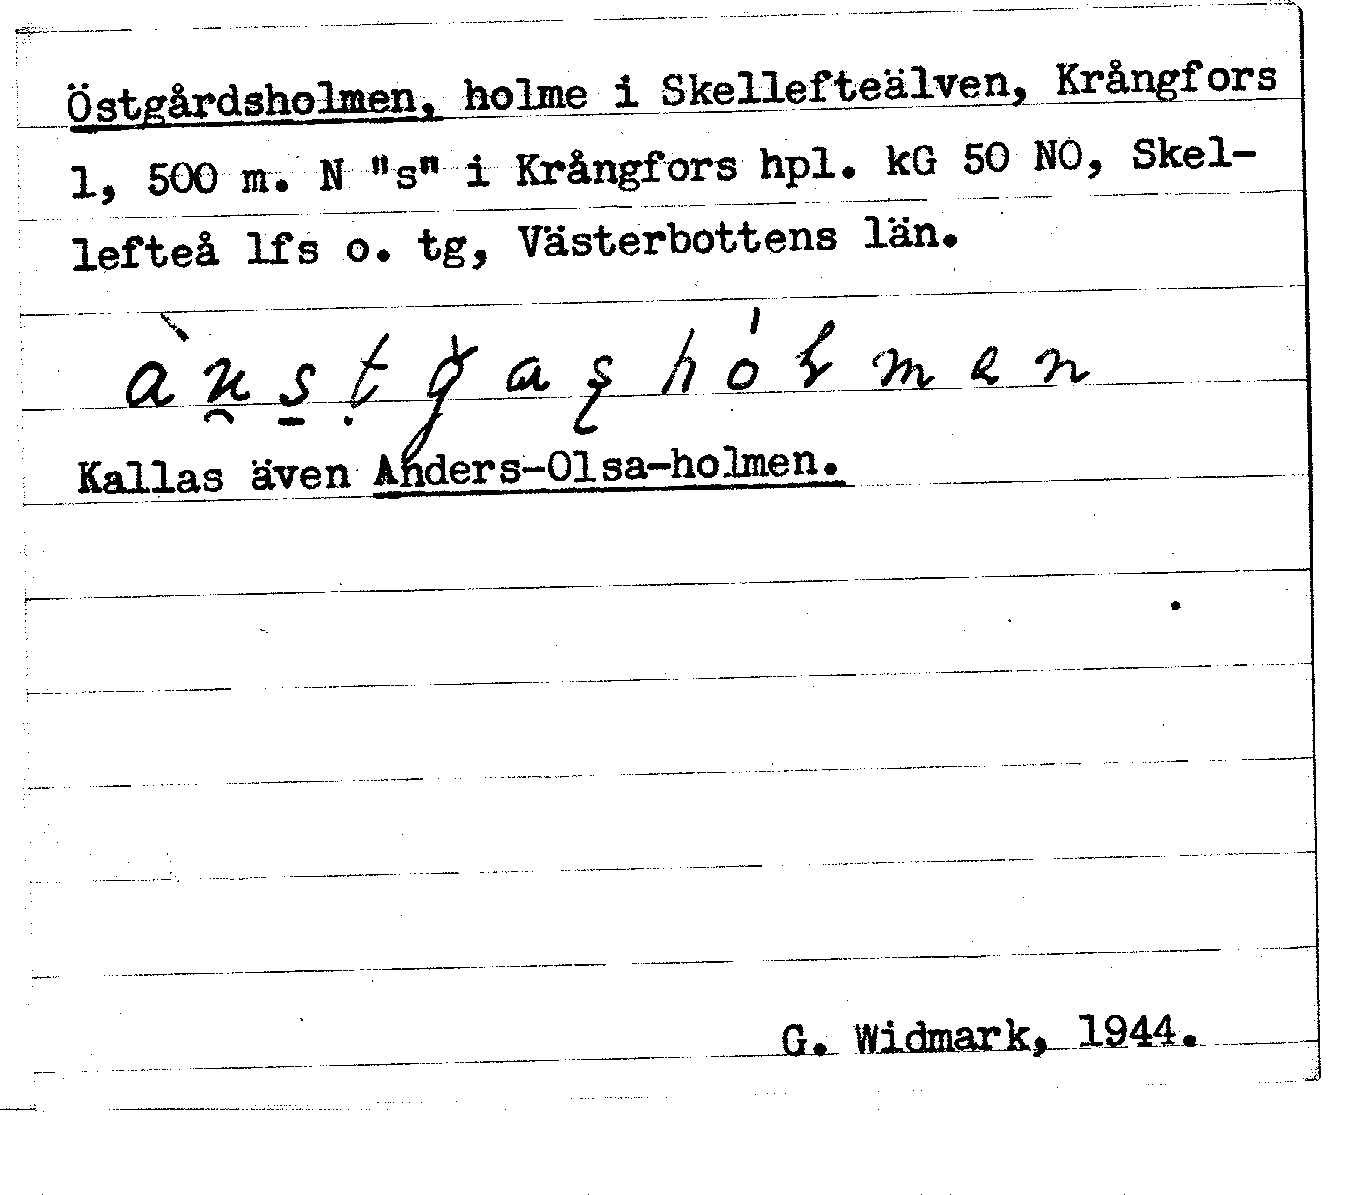 Östgårdsholmen, holme i Skellefteälven, Krångfors
1, 500 m. N "s" i Krångfors hpl. kG 50 NO, Skel-
lefteå lfs o. tg, Västerbottens län.
Kallas även Anders-Olsa-holmen.
G. Widmark, 1944.